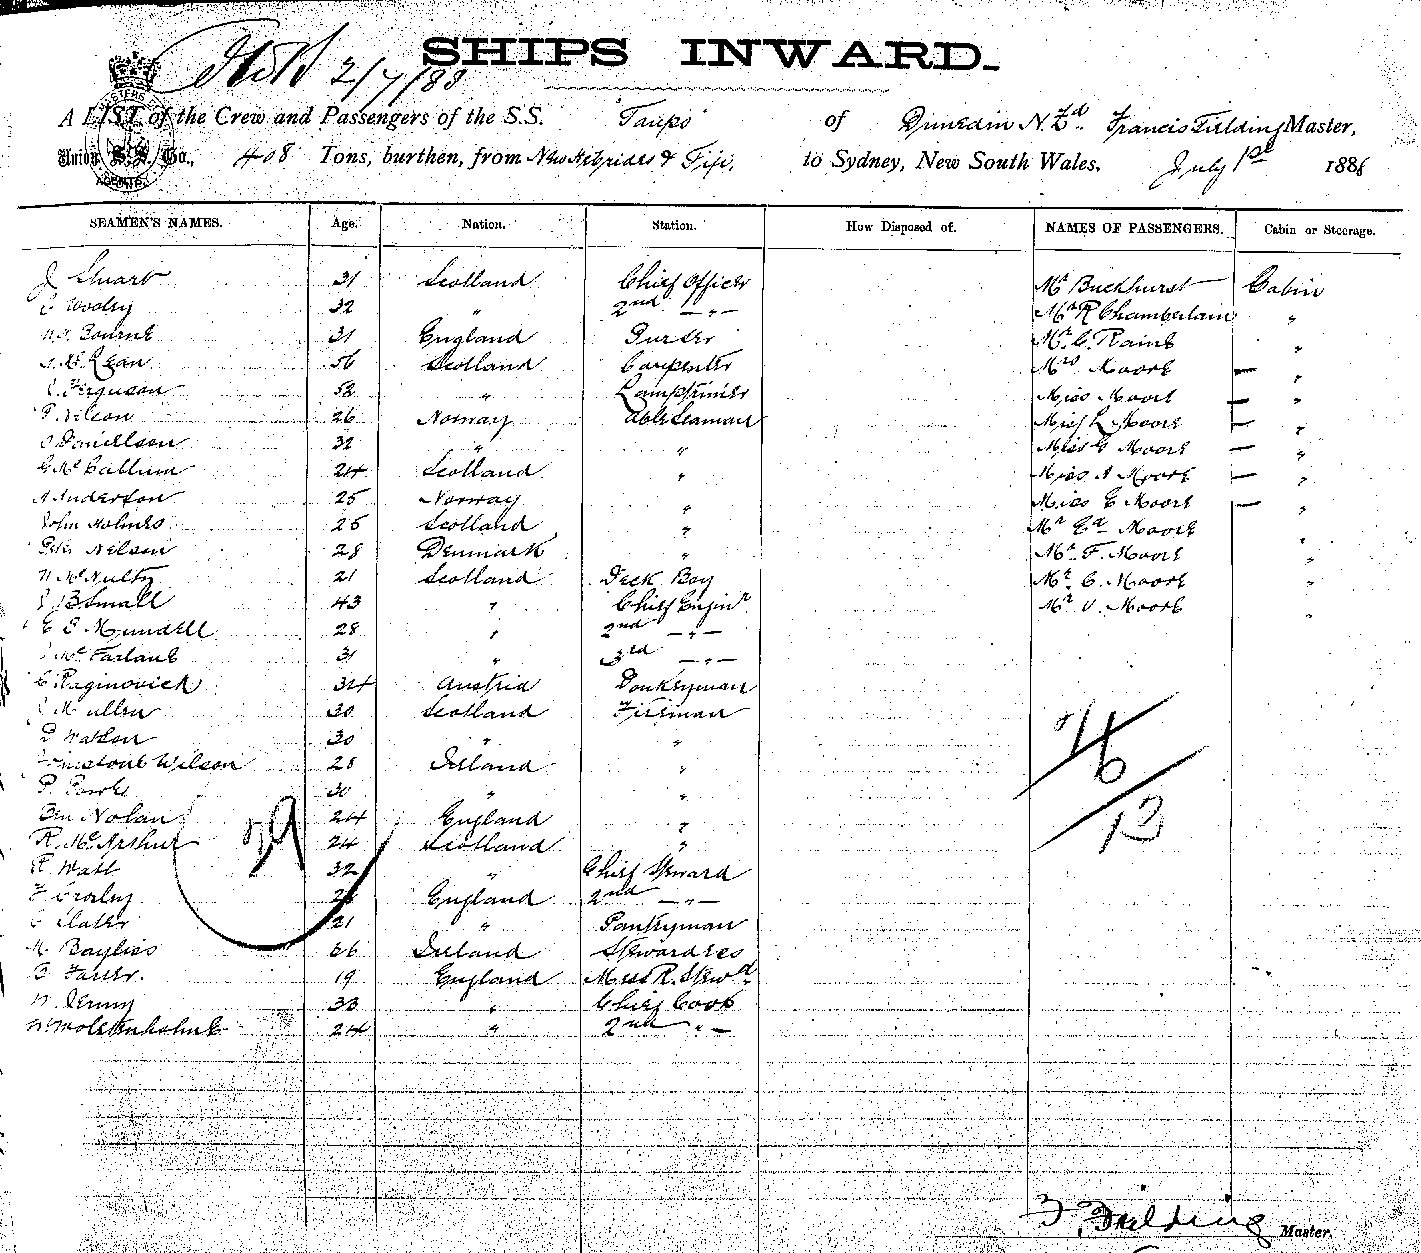 SHIPS INWARD.
2/7/88
A LIST of the Crew and Passengers of the S.S. "Taupo" of Dunedin N.Zd. Francis Fielding Master,
Union S.S. Co., 408 Tons, burthen, from New Hebrides & Fiji, to Sydney, New South Wales, July 1st 1888
AGENTS.
SEAMEN'S NAMES. Age. Nation. Station. How Disposed of. NAMES OF PASSENGERS. Cabin or Steerage.
J Stuart 31 Scotland Chief Officer Mr Buckhurst Cabin
Woolry 32 " 2nd —"— Mr R Chamberlain "
Bourne 31 England Purser Mr. C. Raine "
McLean 56 Scotland Carpenter Mrs Moore — "
Ferguson 52 " Lamptrimer Miss Moore — "
Nelson 26 Norway Able Seaman Miss L Moore — "
Danielson 32 " " Miss G Moore — "
McCallum 24 Scotland " Miss A Moore — "
A Anderson 25 Norway " Miss E Moore — "
John Holmes 25 Scotland " Mr Ed Moore "
Peter Nelson 28 Denmark " Mr. F. Moore "
McNulty 21 Scotland Deck Boy Mr. C. Moore "
J B Small 43 " Chief Enginr Mr V. Moore "
E E Mundell 28 " 2nd —"—
McFarlane 31 " 3rd —"—
C Raginovich 34 Austria Donkeyman
J Mullen 30 Scotland Fireman
D Watson 30 " "
Wilson 28 Ireland "
P. 30 " "
Ben Nolan 24 England "
R. McArthur 24 Scotland "
R Watt 32 " Chief Steward
F Crosby England 2nd —"—
C Slater 21 " Pantryman
M Bayliss 26 Ireland Stewardess
19 England Mess R. Stewd.
W. Jenny 33 " Chief Cook
W Wolstenholme 24 " 2nd " —
29
16
13
F. Fielding Master.